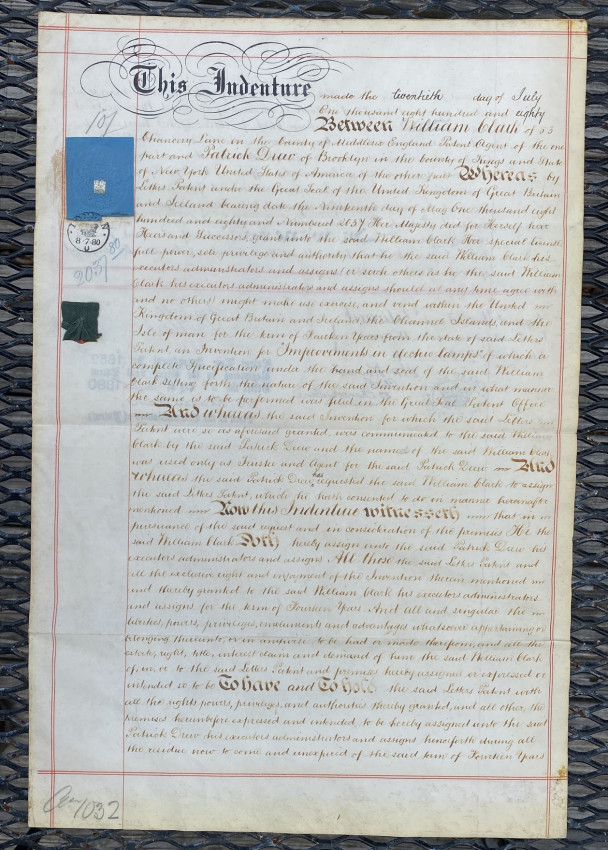 This Indenture made the twentieth day of July
One thousand eight hundred and eighty
Between William Clark of 53
Chancery Lane in the County of Middlesex England Patent Agent of the one
part and Patrick Drew of Brooklyn in the County of Kings and State
of New York United States of America of the other part Whereas by
Letters Patent under the Great Seal of the United Kingdom of Great Britain
and Ireland bearing date the Nineteenth day of May One thousand eight
hundred and eighty and Numbered 2037 Her Majesty did for Herself her
Heirs and Successors, grant unto the said William Clark Her special license
full power, sole privilege and authority that he the said William Clark his
executors administrators and assigns or such others as he the said William
Clark his executors administrators and assigns should at any time agree with
and no others might make use exercise, and vend within the United
Kingdom of Great Britain and Ireland, the Channel Islands, and the
Isle of man for the term of Fourteen Years from the date of said Letters
Patent, an Invention for "Improvements in electric lamps" of which a
complete Specification under the hand and seal of the said William
Clark setting forth the nature of the said Invention and in what manner
the same is to be performed was filed in the Great Seal Patent Office
And whereas the said Invention for which the said Letters
Patent were so as aforesaid granted, was communicated to the said William
Clark by the said Patrick Drew and the name of the said William Clark
was used only as Trustee and Agent for the said Patrick Drew And
whereas the said Patrick Drew has requested the said William Clark to assign
the said Letters Patent, which he hath consented to do in manner hereinafter
mentioned Now this Indenture witnesseth that in
pursuance of the said request and in consideration of the premises He the
said William Clark Doth hereby assign unto the said Patrick Drew his
executors administrators and assigns All those the said Letters Patent and
all the exclusive right and enjoyment of the Invention therein mentioned
and thereby granted to the said William Clark his executors administrators
and assigns for the term of Fourteen Years And all and singular the
liberties, powers, privileges, emoluments and advantages whatsoever appertaining or
belonging thereunto, or in anywise to be had or made thereupon, and all the
estate, right, title, interest claim and demand of him the said William Clark
of, in, or to the said Letters Patent and premises hereby assigned or expressed or
intended so to be To have and To hold the said Letters Patent with
all the rights powers, privileges, and authorities thereby granted, and all other, the
premises hereinbefore expressed and intended, to be hereby assigned unto the said
Patrick Drew his executors administrators and assigns henceforth during all
the residue now to come and unexpired of the said term of Fourteen Years
10/
8·7·80
2037
80
1032